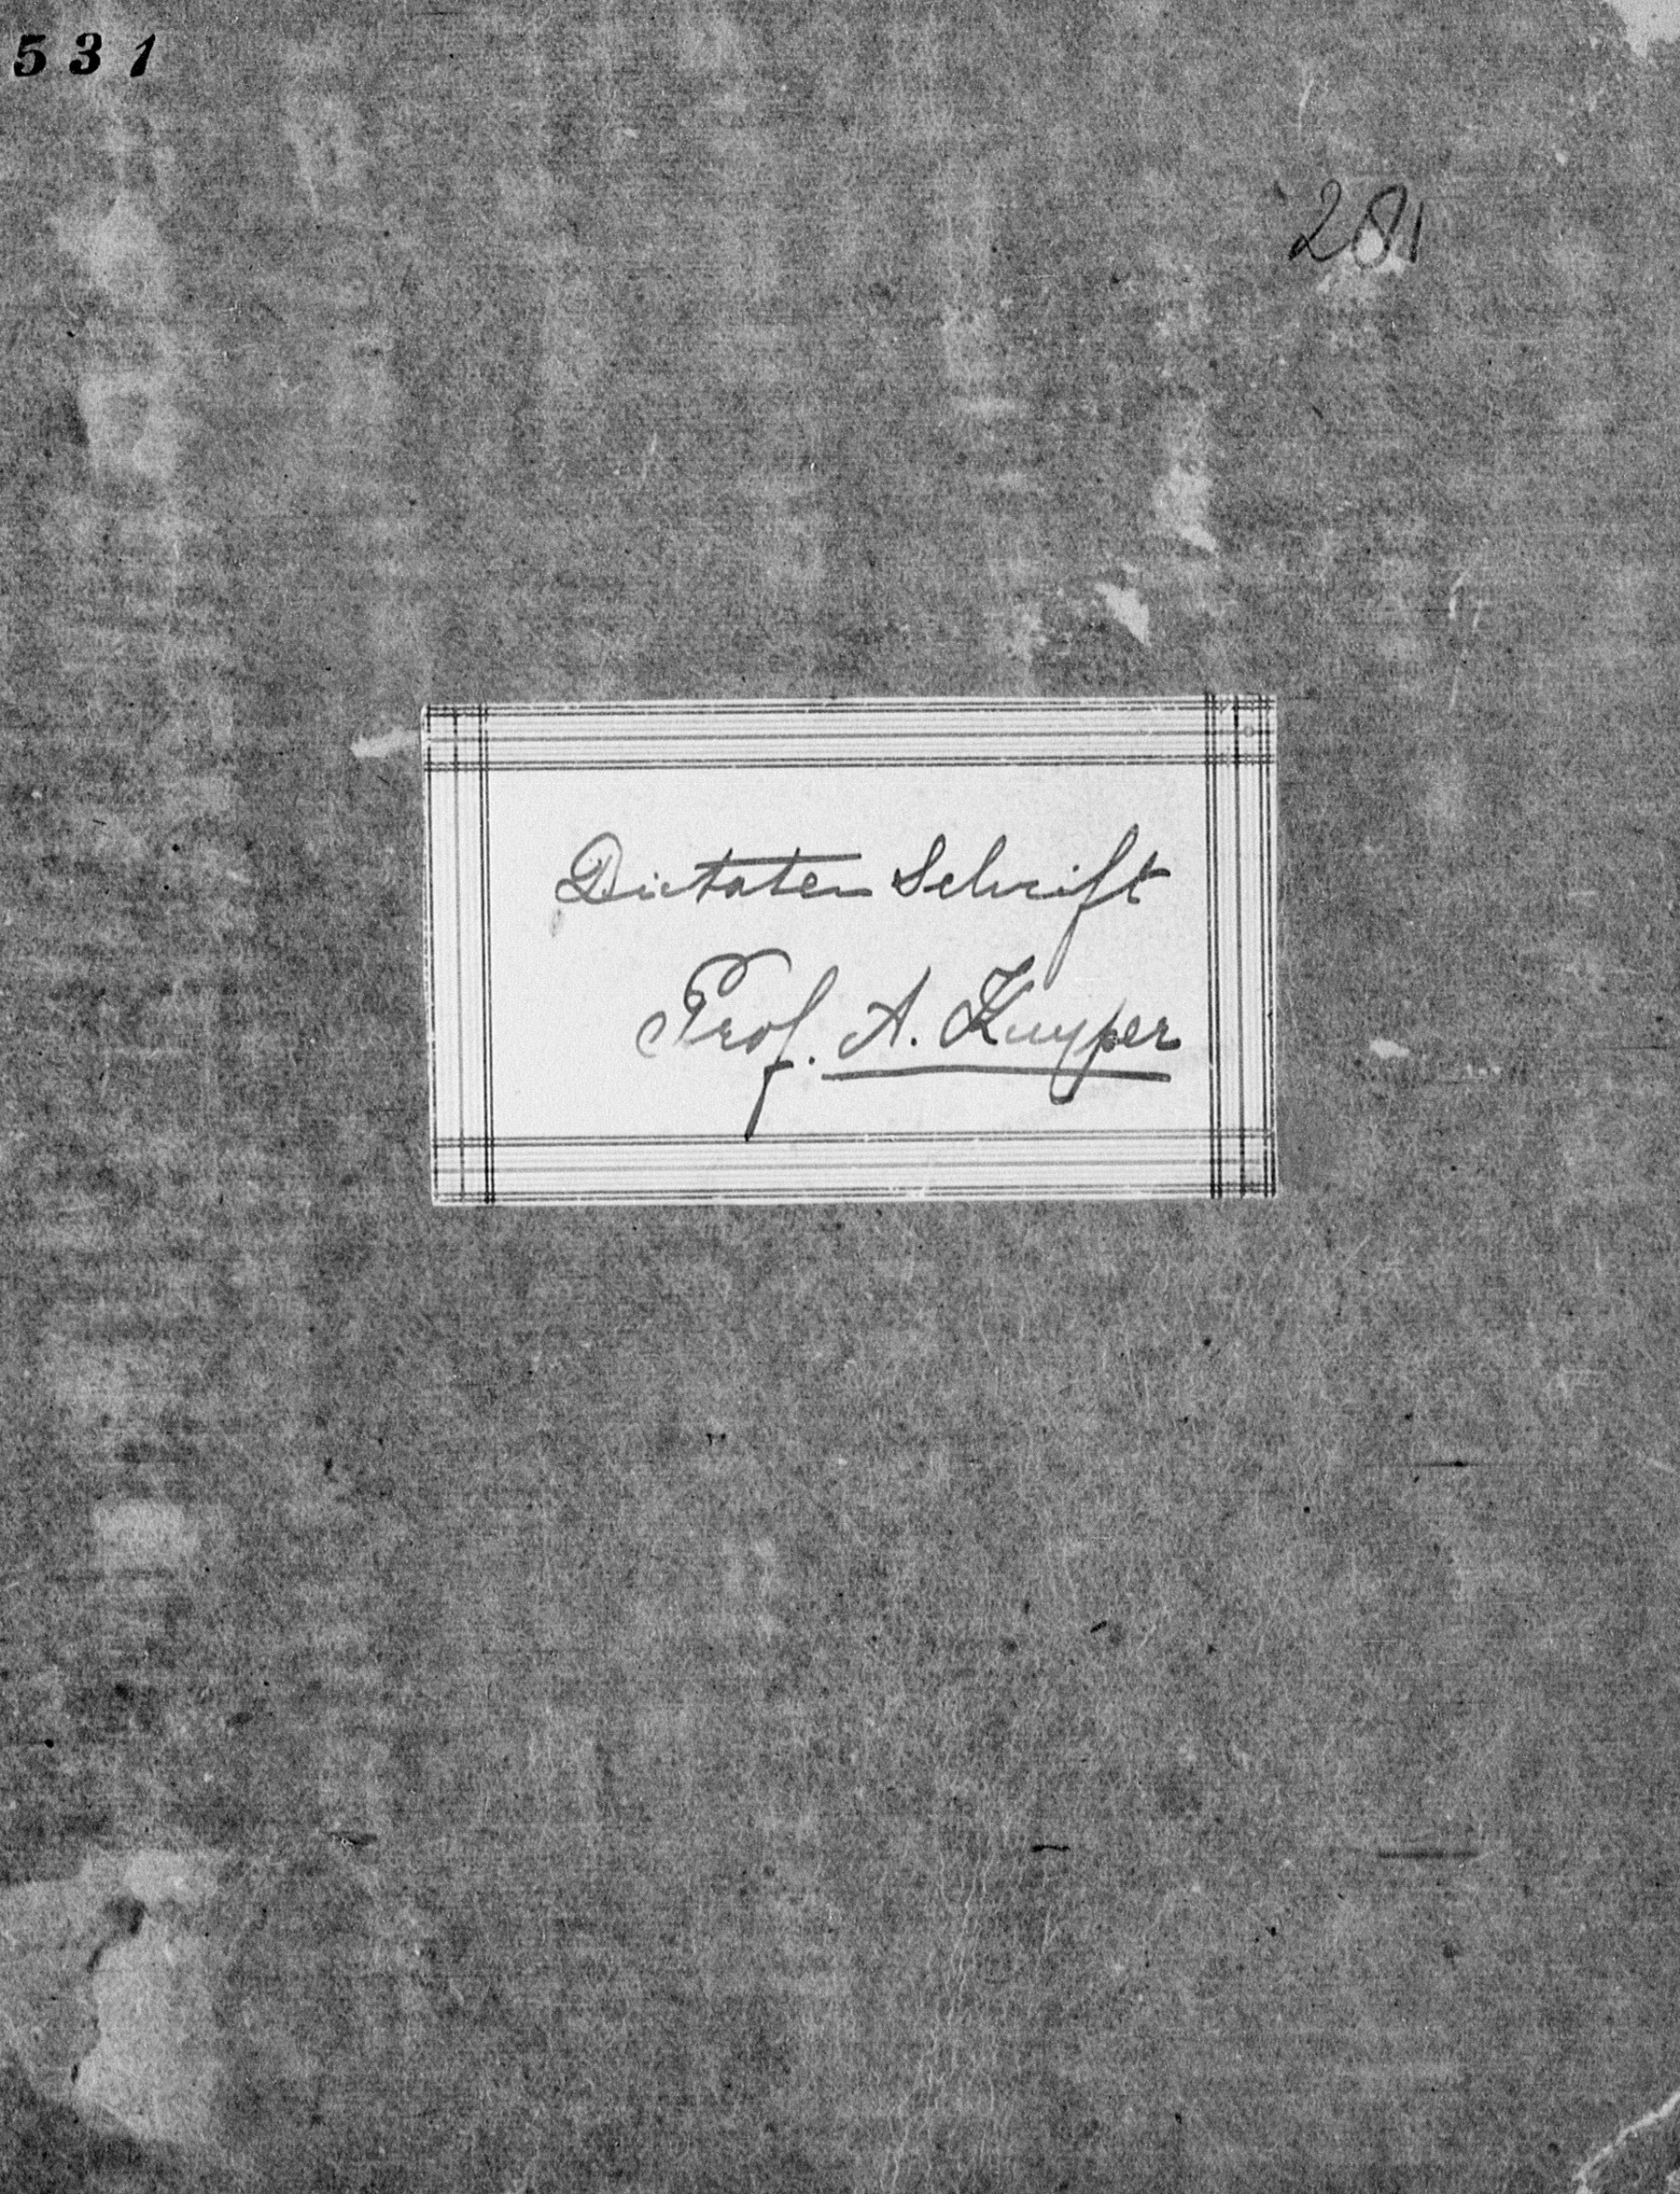 531
281
Dictaten Schrift
Prof. A. Kuyper